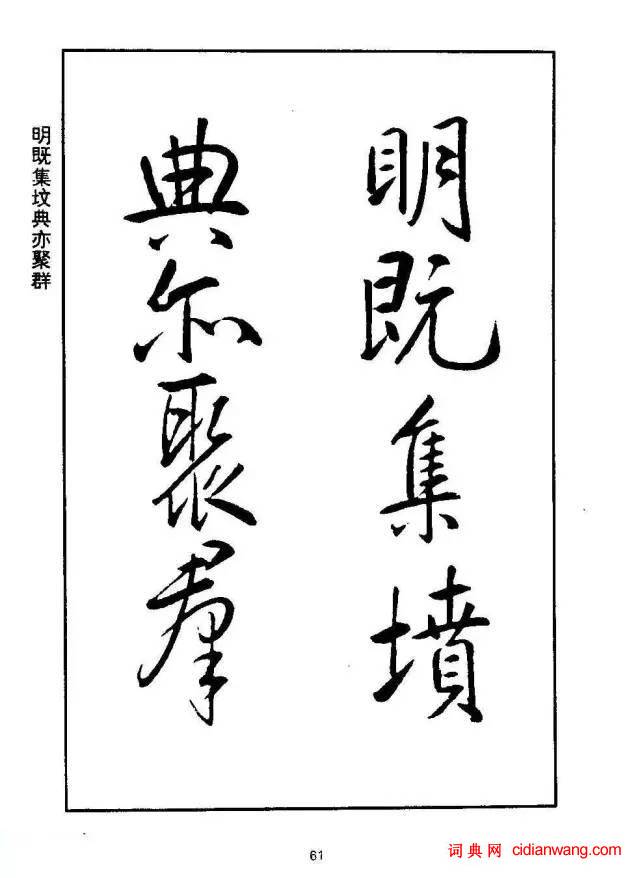 明既集墳
典亦聚羣
明既集坟典亦聚群
61
词典网 cidianwang.com